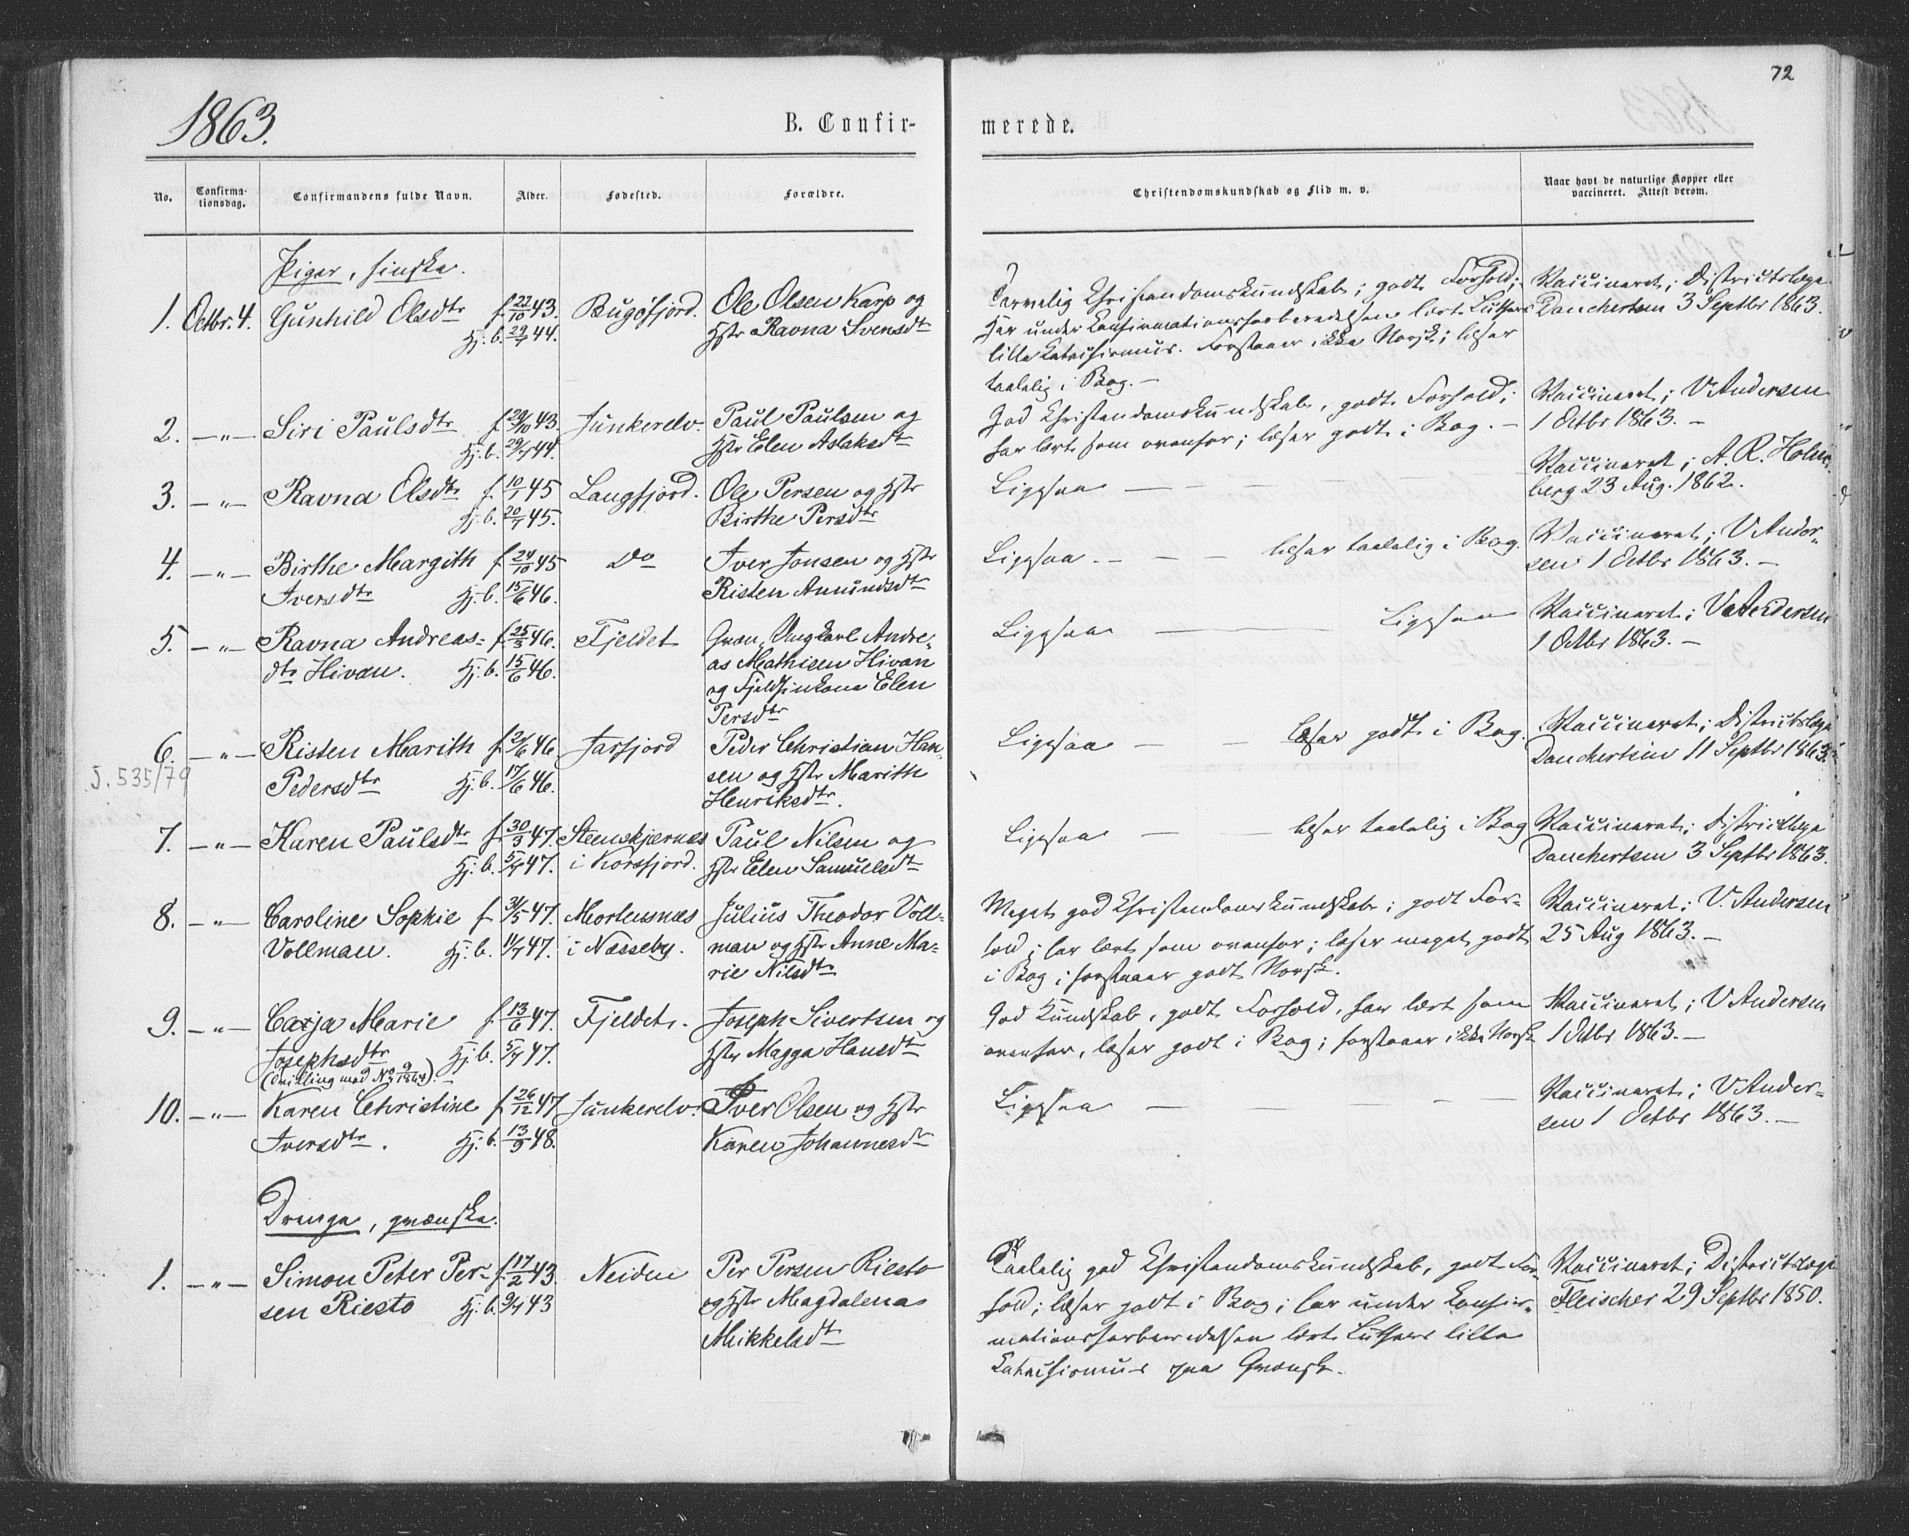 72
1863.
B. Confir-
merede.
No.
Confirma-
tionsdag.
Confirmandens fulde Navn.
Alder.
Fødested.
Forældre.
Christendomskundskab og Flid m. v.
Naar havt de naturlige Kopper eller
vaccineret. Attest derom.
Piger, finske.
1. Octbr. 4. Gunhild Olsdtr f. 22/10 43. Bugöfjord. Ole Olsen Karp og
Hj. b. 29/1 44. Hstr Ravna Svensdtr
Tarvelig Christendomskundskab; godt Forhold;
har under Konfirmationsforberedelsen lært Luthers
lille Katechismus. Forstaaer ikke Norsk; læser
taalelig i Bog. —
Vaccineret; Districtslæge
Danchertsen 3 Septbr 1863.
2. —"— Siri Paulsdtr f. 29/10 43. Junkerelv. Paul Paulsen og
Hj. b. 29/1 44. Hstr Elen Aslaksdtr
God Christendomskundskab, godt Forhold;
har lært som ovenfor; læser godt i Bog. —
Vaccineret; V. Andersen
1 Octbr 1863. —
3. —"— Ravna Olsdtr f. 10/1 45 Langfjord. Ole Persen og Hstr
Hj. b. 20/7 45. Birthe Persdtr
Ligesaa — — —
Vaccineret; A. R. Holm-
berg 23 Aug. 1862.
4. —"— Birthe Margith f. 24/10 45 Do Iver Jonsen og Hstr
Iversdtr Hj. b. 15/6 46. Risten Amundsdtr
Ligesaa. — — — læser taalelig i Bog.
Vaccineret; V Ander-
sen 1 Octbr 1863. —
5. —"— Ravna Andreas- f. 25/3 46. Fjeldet Qvæn, Ungkarl Andre-
dtr Hivan. Hj. b. 15/6 46. as Mathisen Hivan
og Fjeldfinkone Elen
Persdtr
Ligesaa — — — Ligesaa
Vaccineret; V. Andersen
1 Octbr 1863. —
6. —"— Risten Marith f. 2/6 46 Jarfjord Peder Christian Han-
J. 535/79
Pedersdtr Hj. b. 17/6 46. sen og Hstr Marith
Henriksdtr.
Ligesaa — — læser godt i Bog.
Vaccineret; Districtslæge
Danchertsen 11 Septbr 1863.
7. —"— Karen Paulsdtr f. 30/3 47. Stenskjærnes Paul Nilsen og
Hj. b. 5/4 47. i Korsfjord. Hstr Elen Samuelsdtr
Ligesaa — — læser taalelig i Bog
Vaccineret; Districtslæge
Danchertsen 3 Septbr 1863.
8. —"— Caroline Sophie f. 31/5 47. Mortensnæs Julius Theodor Voll-
Vollman. Hj. b. 11/7 47. i Næsseby. man og Hstr Anne Ma-
rie Nilsdtr
Meget god Christendomskundskab; godt For-
hold; har lært som ovenfor; læser meget godt
i Bog; forstaaer godt Norsk.
Vaccineret; V. Andersen
25 Aug 1863. —
9. —"— Caxja Marie f. 13/6 47. Fjeldet. Joseph Sivertsen og
Josephsdtr Hj. b. 5/7 47. Hstr Magga Hansdtr
(tvilling med No 9/1864).
God Kundskab, godt Forhold, har lært som
ovenfor, læser godt i Bog; forstaaer ikke Norsk
Vaccineret; V Andersen
1 Octbr 1863. —
10. —"— Karen Christine f. 26/12 47 Junkerelv. Iver Olsen og Hstr
Iversdtr. Hj. b. 13/9 48. Karen Johannesdtr
Ligesaa — — — —
Vaccineret; V Ander-
sen 1 Octbr 1863. —
Drenge, qvænske.
1. —"— Simon Peter Per- f. 17/2 43. Neiden Per Persen Riesto
sen Riesto Hj. b. 9/4 43 og Hstr Magdalena
Mikkelsdtr
Taalelig god Christendomskundskab, godt For-
hold; læser godt i Bog; har under Konfir-
mationsforberedelsen lært Luthers lille
Katechismus paa Qvænsk.
Vaccineret; Districtslæge
Fleischer 29 Septbr 1850.